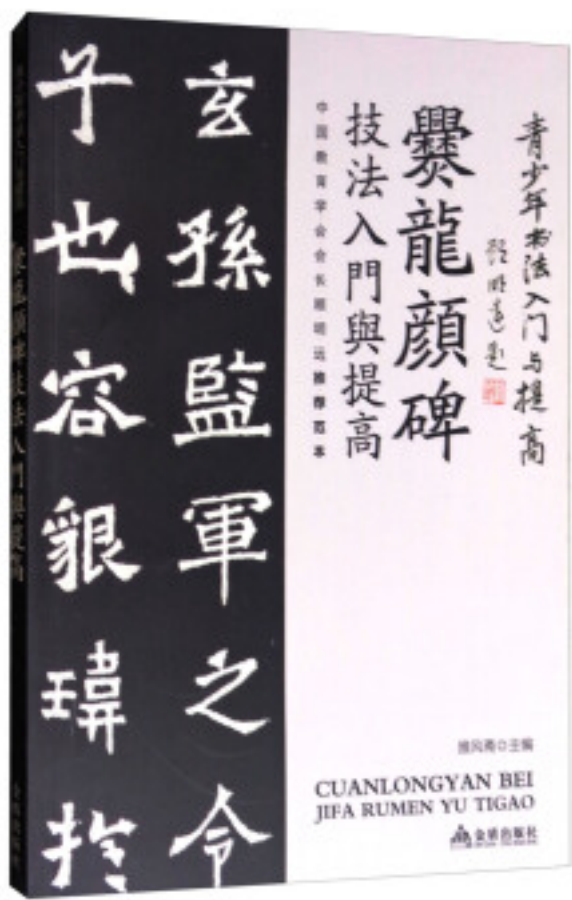 青少年书法入门与提高
顾明远题
爨龍顔碑
技法入門與提高
中国教育学会会长顾明远推荐范本
玄孫監軍之令
子也容貇瑋扵
爨龍顔碑技法入門與提高
金盾出版社
主编
CUANLONGYAN BEI
JIFA RUMEN YU TIGAO
金盾出版社